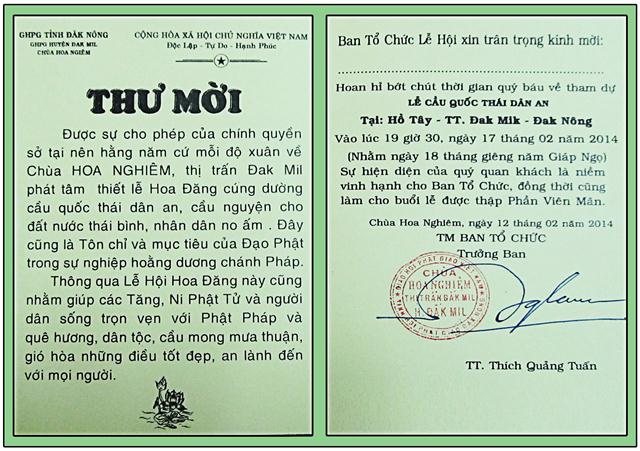 GHPG TỈNH ĐĂK NÔNG
GHPG HUYỆN ĐAK MIL
CHÙA HOA NGHIÊM
CỘNG HÒA XÃ HỘI CHỦ NGHĨA VIỆT NAM
Độc Lập - Tự Do - Hạnh Phúc
THƯ MỜI
Được sự cho phép của chính quyền
sở tại nên hằng năm cứ mỗi độ xuân về
Chùa HOA NGHIÊM, thị trấn Đak Mil
phát tâm thiết lễ Hoa Đăng cúng dường
cầu quốc thái dân an, cầu nguyện cho
đất nước thái bình, nhân dân no ấm . Đây
cũng là Tôn chỉ và mục tiêu của Đạo Phật
trong sự nghiệp hoằng dương chánh Pháp.
Thông qua Lễ Hội Hoa Đăng này cũng
nhằm giúp các Tăng, Ni Phật Tử và người
dân sống trọn vẹn với Phật Pháp và
quê hương, dân tộc, cầu mong mưa thuận,
gió hòa những điều tốt đẹp, an lành đến
với mọi người.
Ban Tổ Chức Lễ Hội xin trân trọng kính mời:
Hoan hỉ bớt chút thời gian quý báu về tham dự
LỄ CẦU QUỐC THÁI DÂN AN
Tại: Hồ Tây - TT. Đak Mik - Đak Nông
Vào lúc 19 giờ 30, ngày 17 tháng 02 năm 2014
(Nhằm ngày 18 tháng giêng năm Giáp Ngọ)
Sự hiện diện của quý quan khách là niềm
vinh hạnh cho Ban Tổ Chức, đồng thời cũng
làm cho buổi lễ được thập Phần Viên Mãn.
Chùa Hoa Nghiêm, ngày 12 tháng 02 năm 2014
TM BAN TỔ CHỨC
Trưởng Ban
CHÙA
HOA NGHIÊM
THỊ TRẤN ĐĂK MIL
H. ĐĂK MIL
TT. Thích Quảng Tuấn